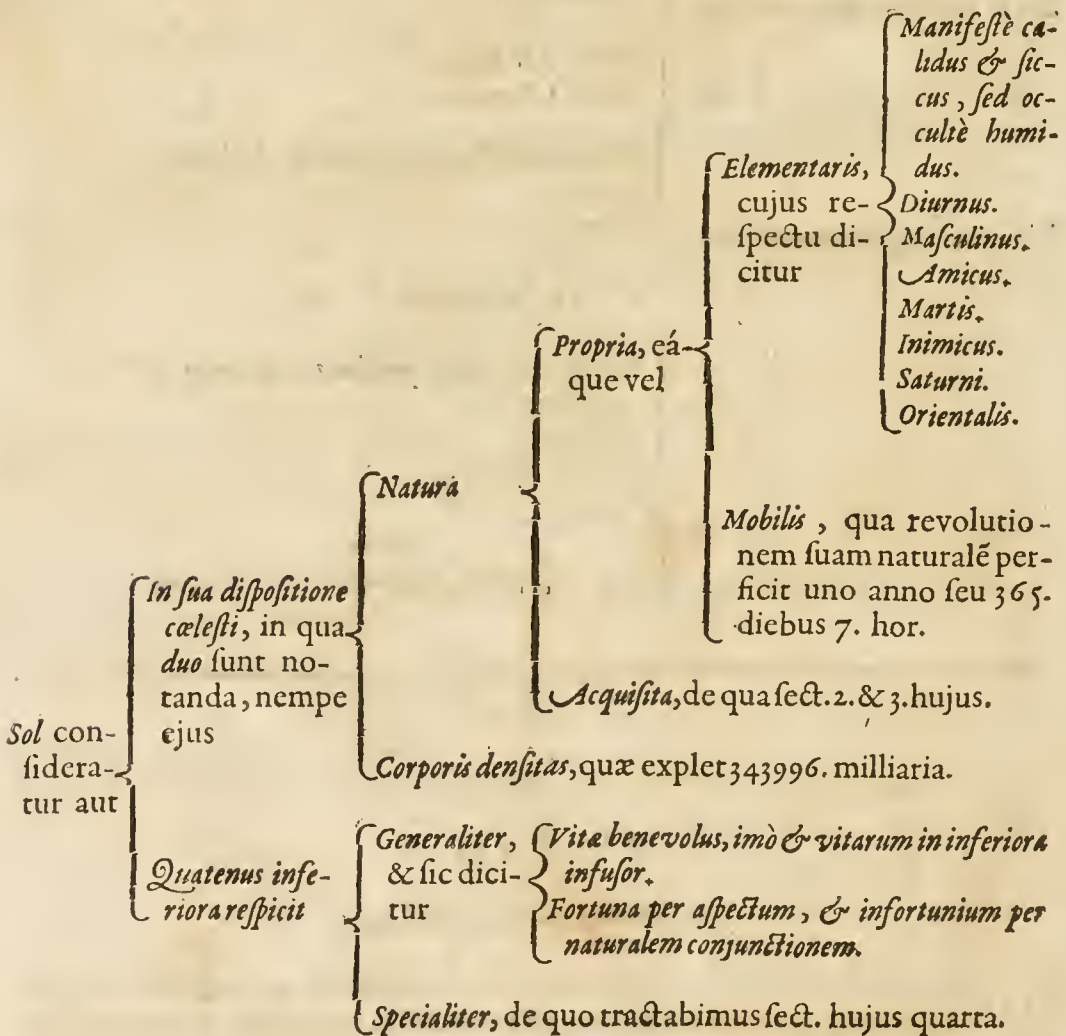 Sol con-
ſidera-
tur aut
In ſua diſpoſitione
cæleſti, in qua
duo ſunt no-
tanda, nempe
ejus
Natura
Propria, eá-
que vel
Elementaris,
cujus re-
ſpectu di-
citur
Manifeſtè ca-
lidus & ſic-
cus, ſed oc-
cultè humi-
dus.
Diurnus.
Maſculinus.
Amicus.
Martis.
Inimicus.
Saturni.
Orientalis.
Mobilis, qua revolutio-
nem ſuam naturalē per-
ficit uno anno ſeu 365.
diebus 7. hor.
Acquiſita, de qua ſect. 2. & 3. hujus.
Corporis denſitas, quæ explet 343996. milliaria.
Quatenus infe-
riora reſpicit
Generaliter,
& ſic dici-
tur
Vitæ benevolus, imò & vitarum in inferiora
infuſor.
Fortuna per aſpectum, & infortunium per
naturalem conjunctionem.
Specialiter, de quo tractabimus ſect. hujus quarta.